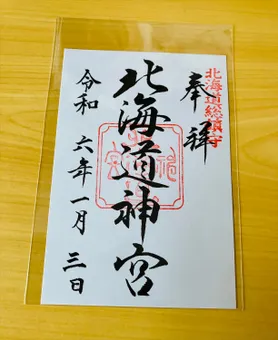 奉拝
北海道総鎮守
北海道神宮
令和六年一月三日